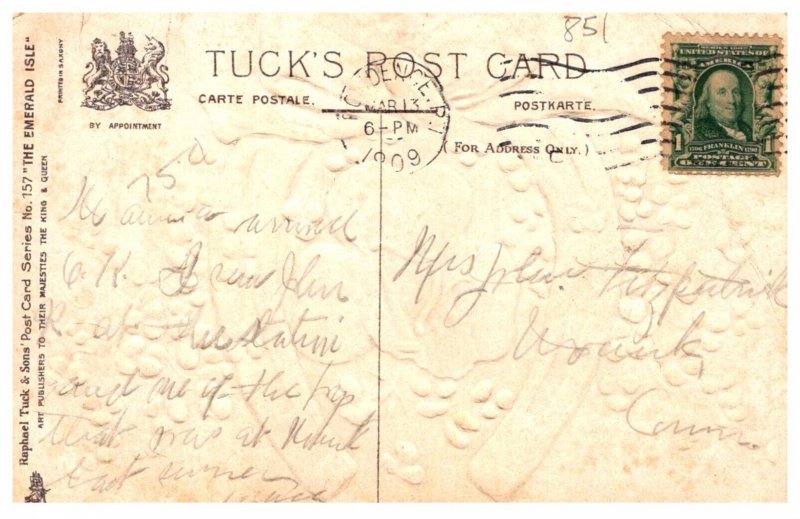 851
TUCK'S POST CARD
CARTE POSTALE.
POSTKARTE.
BY APPOINTMENT
PRINTED IN SAXONY
(FOR ADDRESS ONLY.)
DENCE, R.I.
MAR 13
6-PM
1909
SERIES 1902
UNITED STATES OF
AMERICA
1706 FRANKLIN 1790
1 POSTAGE 1
ONE CENT
Raphael Tuck & Sons' Post Card Series No. 157 "THE EMERALD ISLE"
ART PUBLISHERS TO THEIR MAJESTIES THE KING & QUEEN
arrived
O.K. I saw John
at the station
and one of the boys
that was at
last summer
Mrs John Fitzpatrick
Conn.